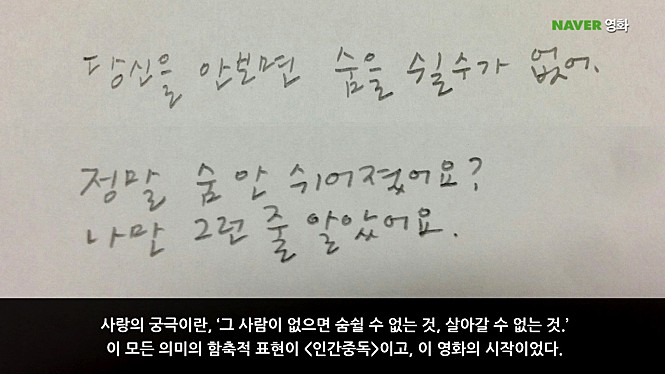 NAVER 영화
당신을 안보면 숨을 수 쉴수가 없어.
정말 숨 안 쉬어졌어요?
나만 그런 줄 알았어요.
사랑의 궁극이란, ‘그 사람이 없으면 숨쉴 수 없는 것, 살아갈 수 없는 것.’
이 모든 의미의 함축적 표현이 <인간중독>이고, 이 영화의 시작이었다.